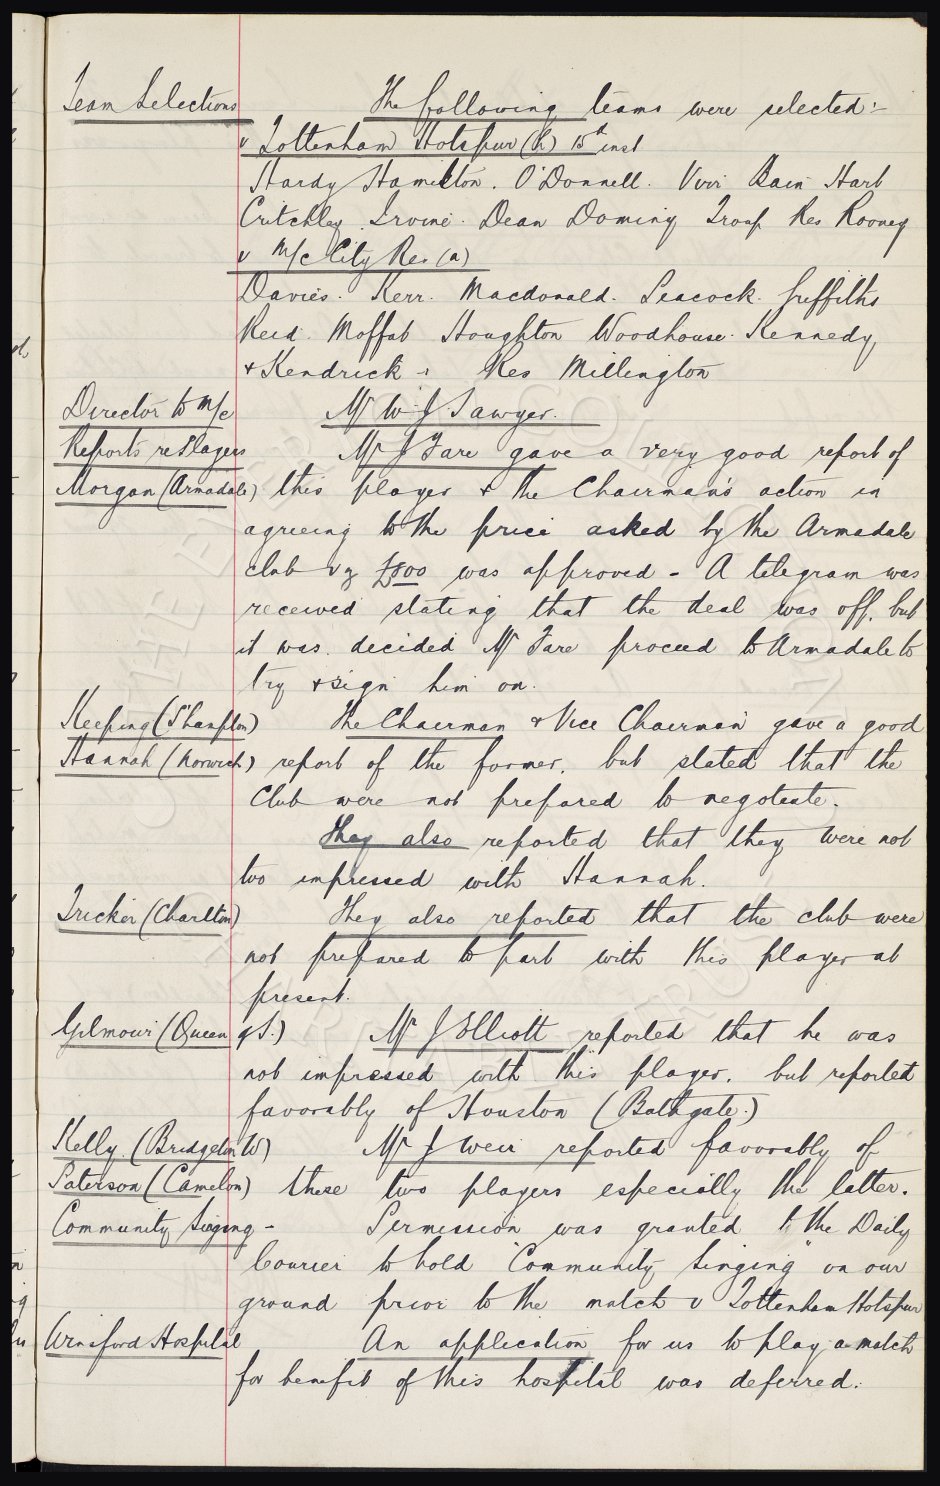 Team Selections The following teams were selected:-
v Tottenham Hotspur (h) 15th inst
Hardy Hamilton. O'Donnell. Virr Bain Hart
Critchley Irvine. Dean Dominy Troup Res Rooney
v M/c City Res (a)
Davies. Kerr. Macdonald. Peacock. Griffiths
Reid. Moffat Houghton Woodhouse. Kennedy
& Kendrick. Res Millington
Director to M/c Mr W J Sawyer.
Reports re Players Mr J Fare gave a very good report of
Morgan (Armadale) this player & the Chairman's action in
agreeing to the price asked by the Armadale
club vz £800 was approved - A telegram was
received stating that the deal was off, but
it was decided Mr Fare proceed to Armadale to
try & sign him on.
Keeping (S'hampton) The Chairman & Vice Chairman gave a good
Hannah (Norwich) report of the former, but stated that the
Club were not prepared to negotiate.
They also reported that they were not
too impressed with Hannah.
Tricker (Charlton) They also reported that the club were
not prepared to part with this player at
present.
Gilmour (Queen of S.) Mr J Elliott reported that he was
not impressed with this player, but reported
favorably of Houston (Bathgate.)
Kelly. (Bridgeton W) Mr J Weir reported favorably of
Paterson (Camelon) these two players especially the latter.
Community Singing - Permission was granted to the Daily
Courier to hold "Community Singing" on our
ground prior to the match v Tottenham Hotspur
Arnsford Hospital An application for us to play a match
for benefit of this hospital was deferred.